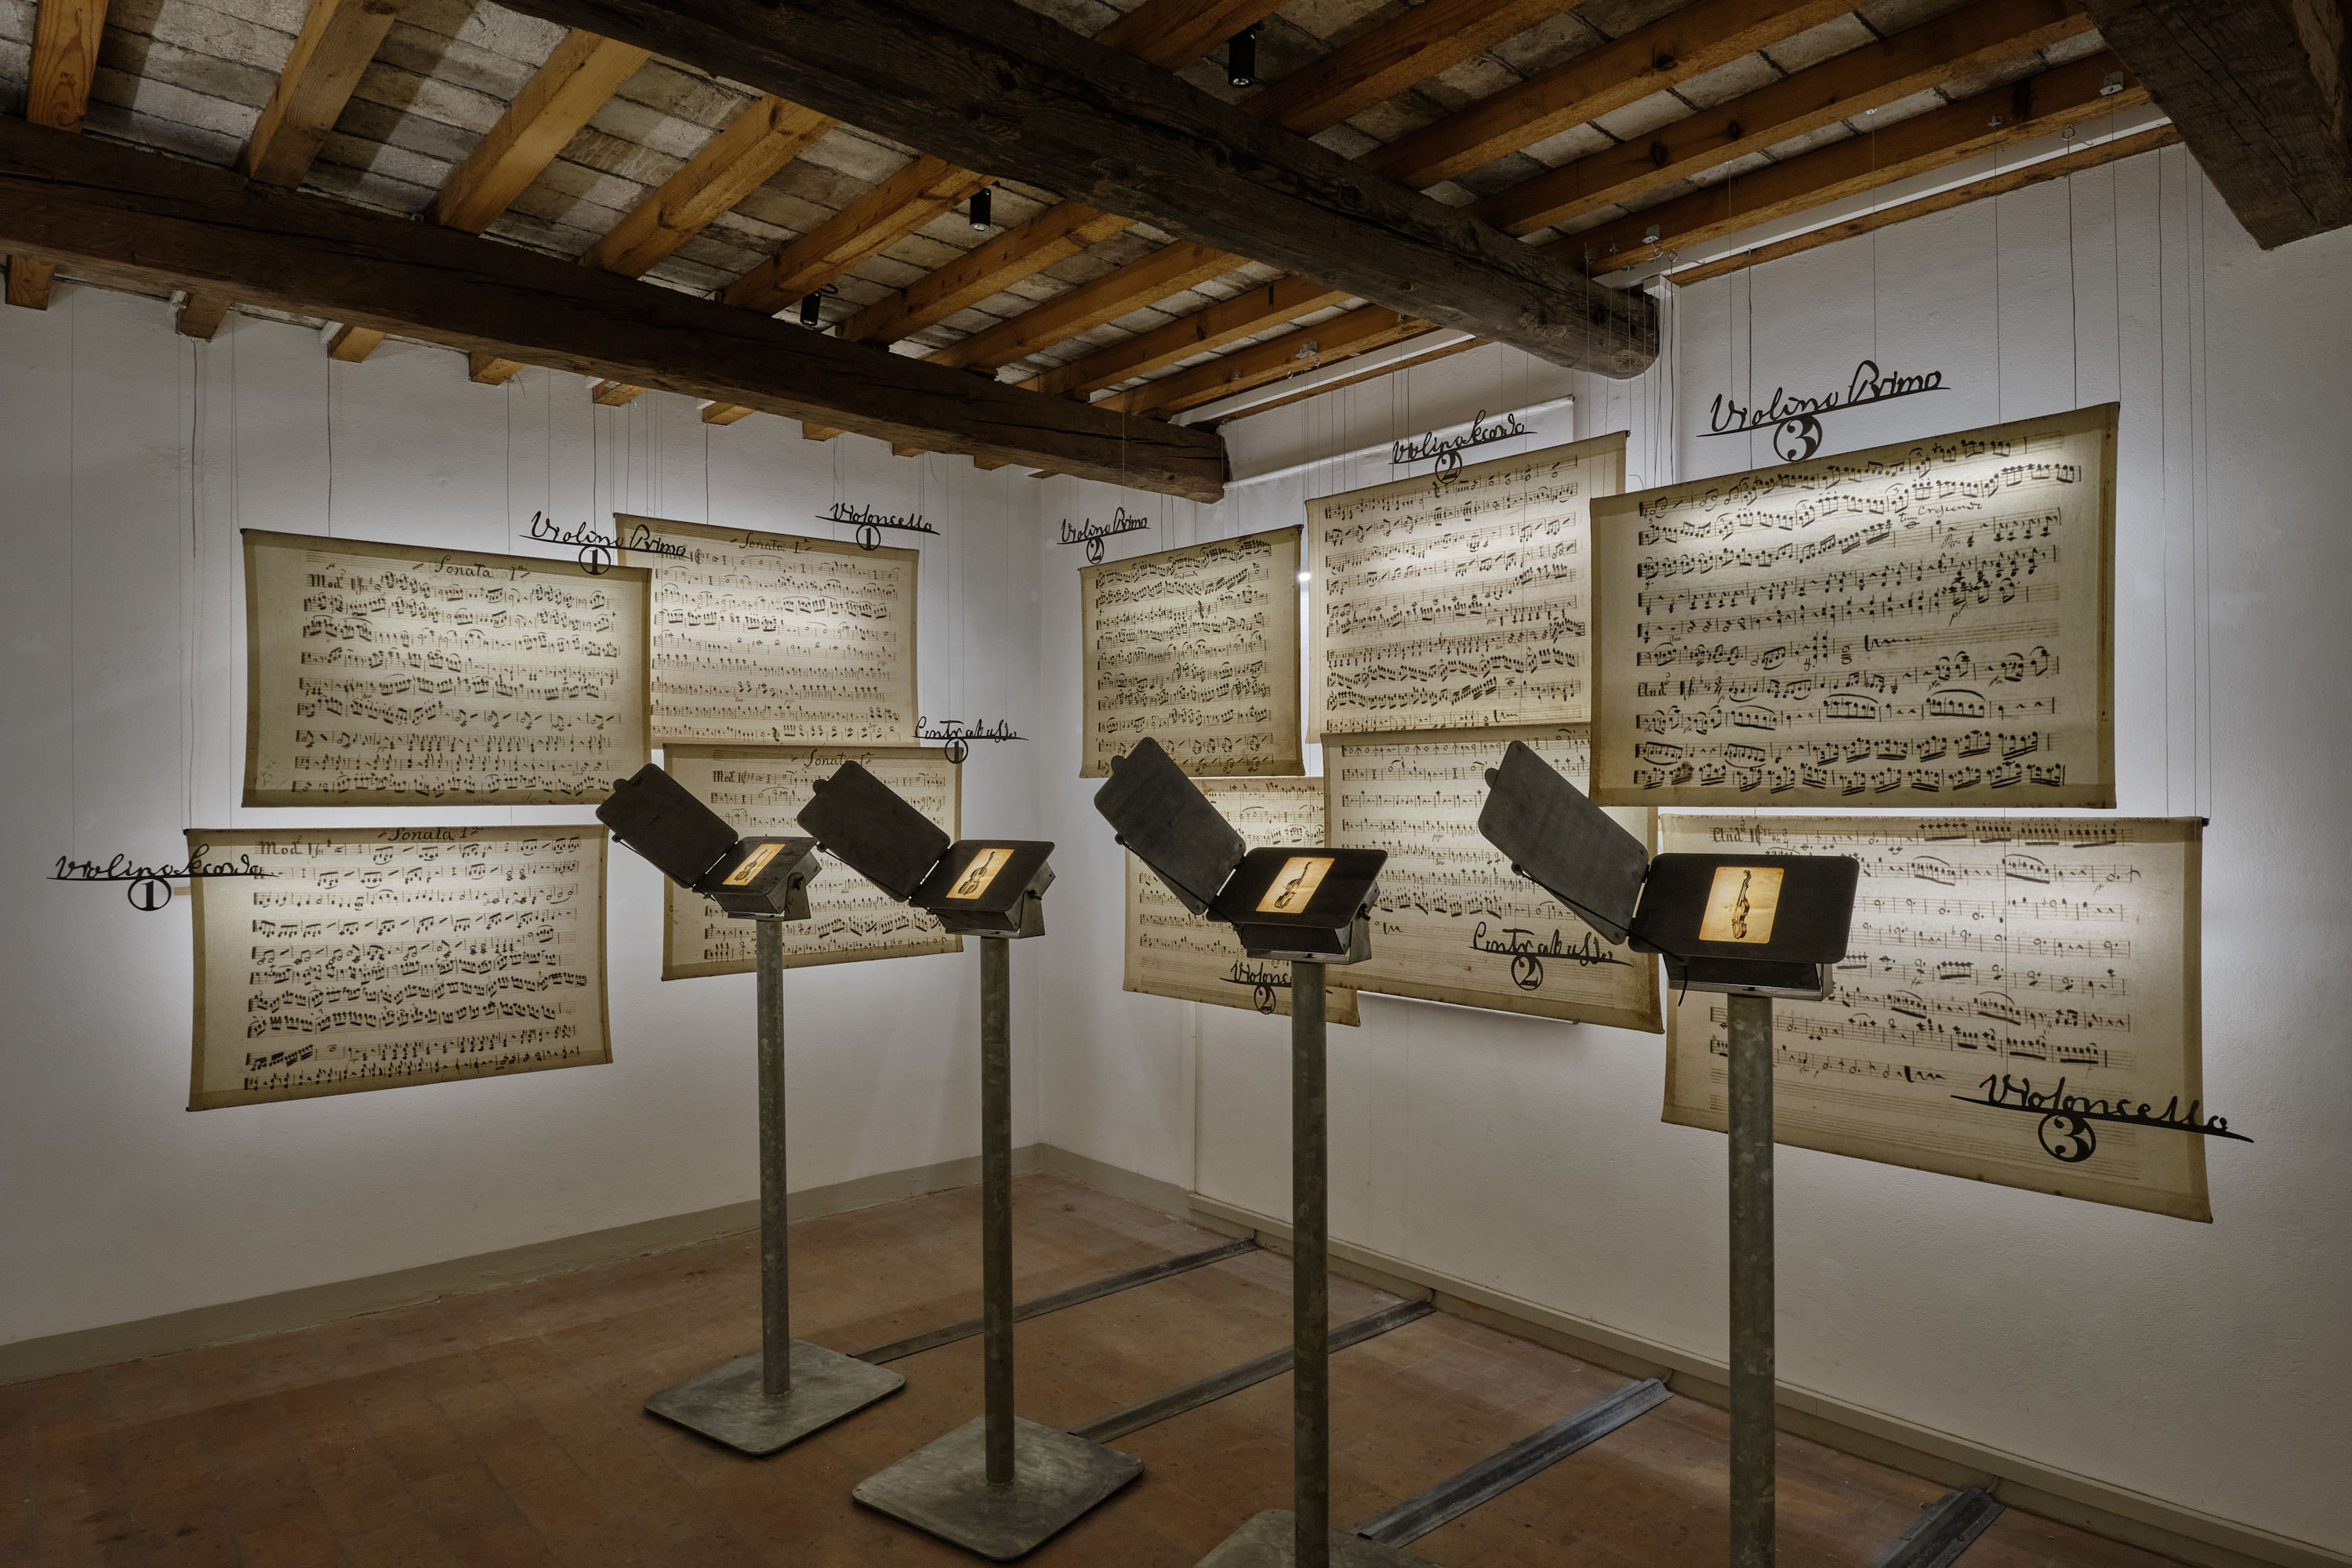 Violino Primo
1
Sonata 1ª
Mod.
Violoncello
1
Sonata 1ª
Contrabasso
1
Sonata 1ª
Mod.
Violino Secondo
1
Sonata 1ª
Mod.
Violino Primo
2
Violino Secondo
2
Violoncello
2
Contrabasso
2
Violino Primo
3
Crescendo
And.
Violoncello
3
And.